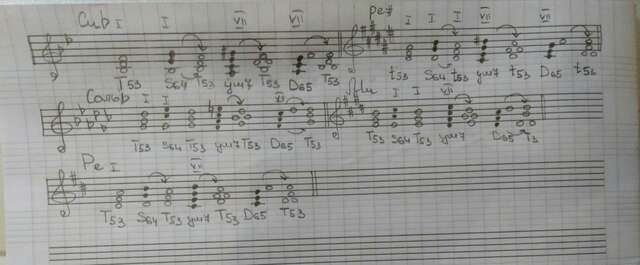 Сиb I I VII VII ре# I I I VII VII
T53 S64 T53 ум7 T53 D65 T53 t53 S64 t53 ум7 t53 D65 t53
Сольb I I VII I I VII
T53 S64 T53 ум7 T53 D65 T53 T53 S64 T53 ум7 D65 T3
Ре I VII
T53 S64 T53 ум7 T53 D65 T53